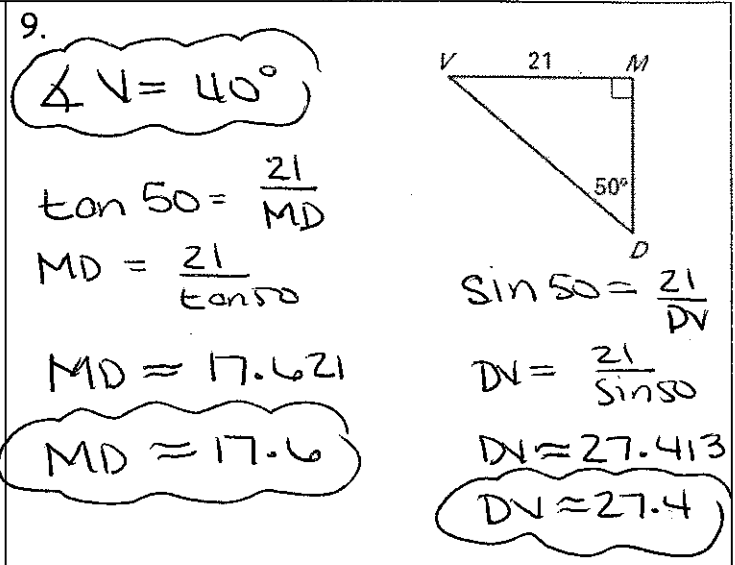 9.
∡ V = 40°
tan 50 = 21/MD
MD = 21/tan50
MD ≈ 17.621
MD ≈ 17.6
V 21 M
50°
D
Sin 50 = 21/DV
DV = 21/Sin50
DV ≈ 27.413
DV ≈ 27.4